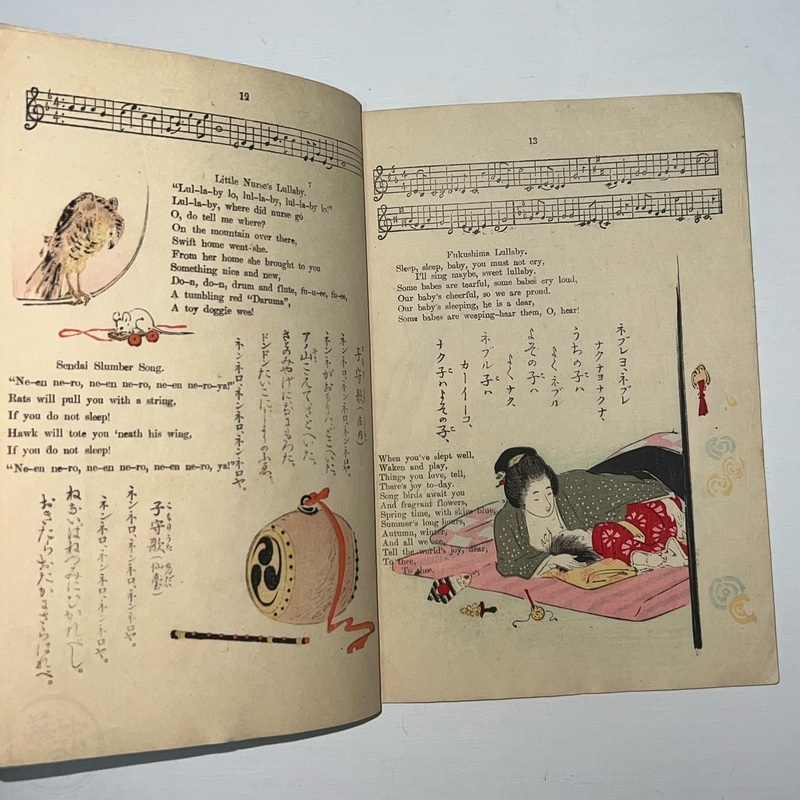 12
Little Nurse's Lullaby.
"Lul-la-by lo, lul-la-by, lul-la-by lo!"
Lul-la-by, where did nurse go
O, do tell me where?
On the mountain over there,
Swift home went she.
From her home she brought to you
Something nice and new,
Do-n, do-n, drum and flute, fu-u-ee, fu-ee,
A tumbling red "Daruma",
A toy doggie wee!
子守歌(庄内)
ネンネロ、ネンネロ、ネンネロヤ。
ネンネがおもりハ、どこへいた。
アノ山こえてさとへいた。
さとのみやげにおぢやもろた。
ドンドンたいこにしようのふゑ。
ネンネロ、ネンネロ、ネンネロヤ。
Sendai Slumber Song.
"Ne-en ne-ro, ne-en ne-ro, ne-en ne-ro-ya!"
Rats will pull you with a string,
If you do not sleep!
Hawk will tote you 'neath his wing,
If you do not sleep!
"Ne-en ne-ro, ne-en ne-ro, ne-en ne-ro, ya!"
子守歌(仙臺)
こもりうた せんだい
ネンネロ、ネンネロ、ネンネロヤ。
ネンネロ、ネンネロ、ネンネロヤ。
ねないはねづみにひかれべし。
おきたらおたかにさらはれべ。
13
Fukushima Lullaby.
Sleep, sleep, baby, you must not cry,
I'll sing maybe, sweet lullaby.
Some babes are tearful, some babes cry loud,
Our baby's cheerful, so we are proud.
Our baby's sleeping, he is a dear,
Some babes are weeping-hear them, O, hear!
ネブレヨ、ネブレ
ナクナヨナクナ、
うちの子ハ
よく ネブル
よその子ハ
よく ナク、
ネブル 子ハ
カーイーコ、
ナク 子ハ よその子、
When you've slept well,
Waken and play,
Things you love, tell,
There's joy to-day.
Song birds await you
And fragrant flowers,
Spring time, with skies blue,
Summer's long hours,
Autumn, winter,
And all we see,
Tell the world's joy, dear,
To thee,
To thee.